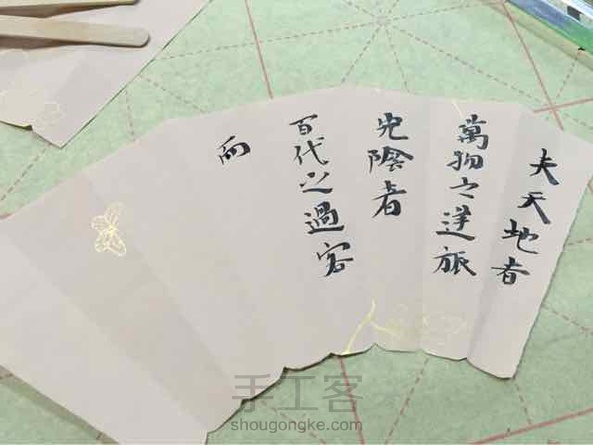 夫天地者
萬物之逆旅
光陰者
百代之過客
而
手工客
shougongke.com